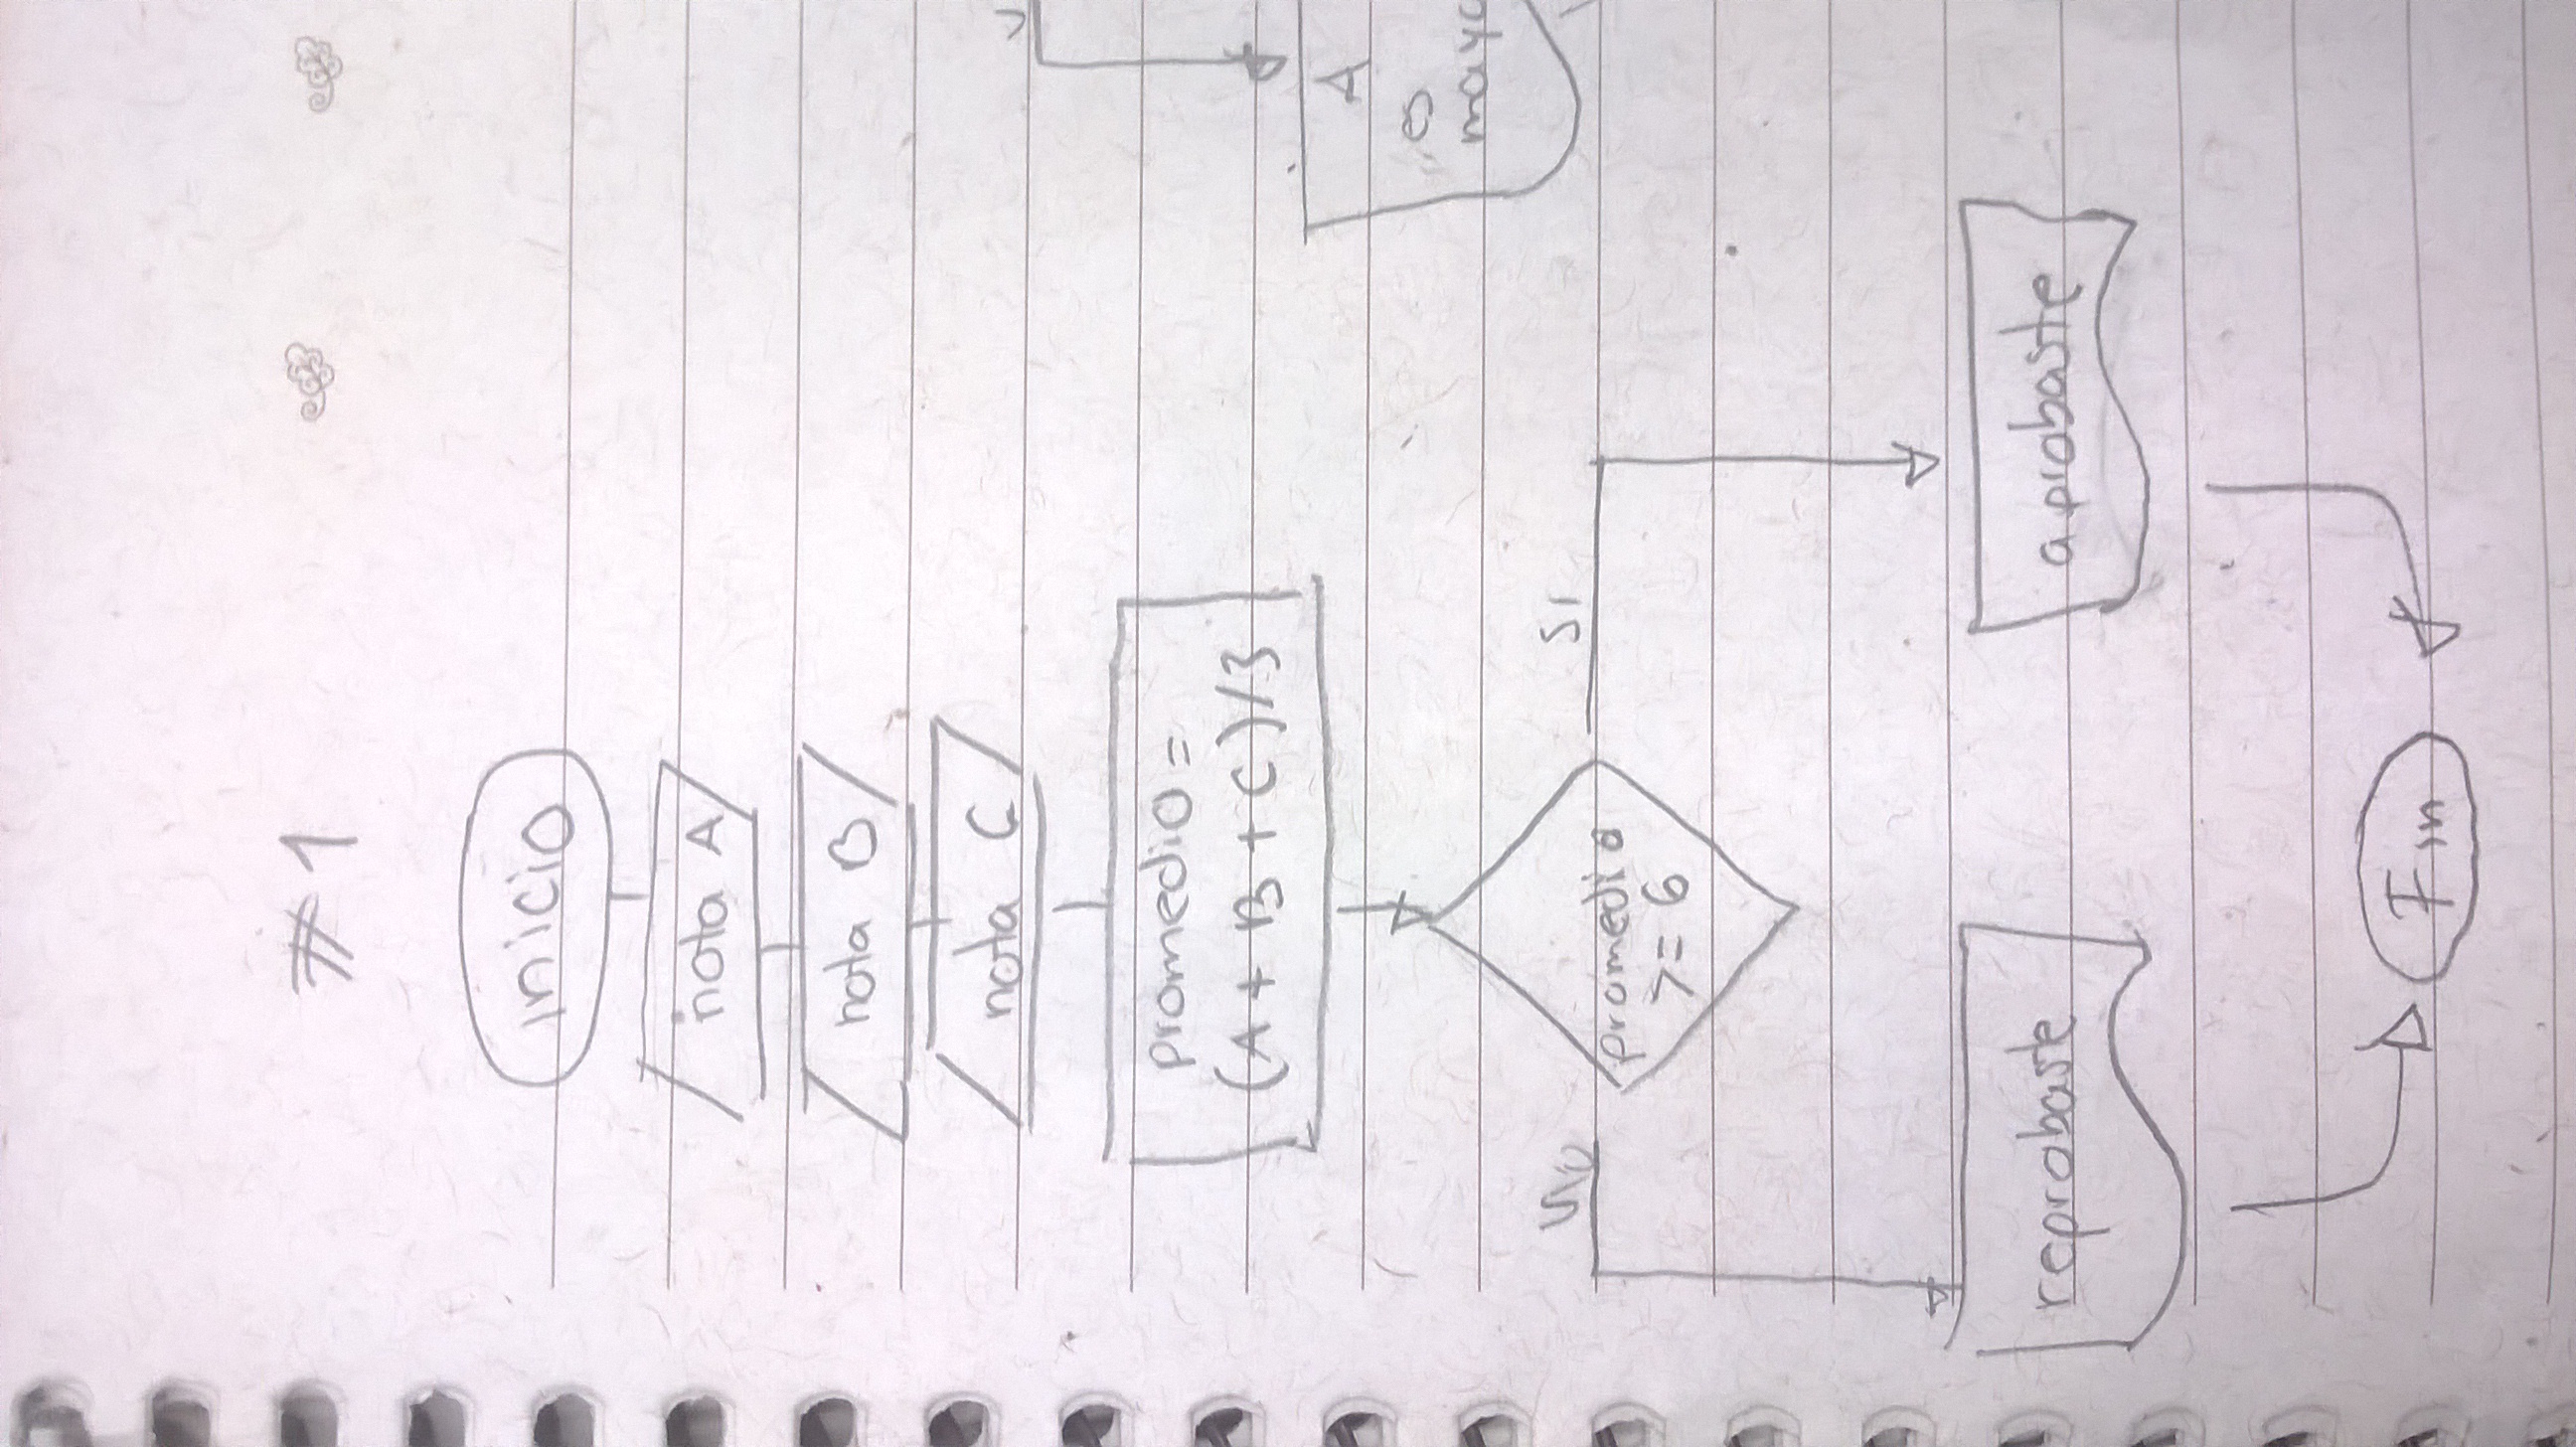 #1
inicio
nota A
nota B
nota C
promedio =
(A + B + C)/3
promedio
>= 6
NO
SI
reprobaste
aprobaste
Fin
A
es